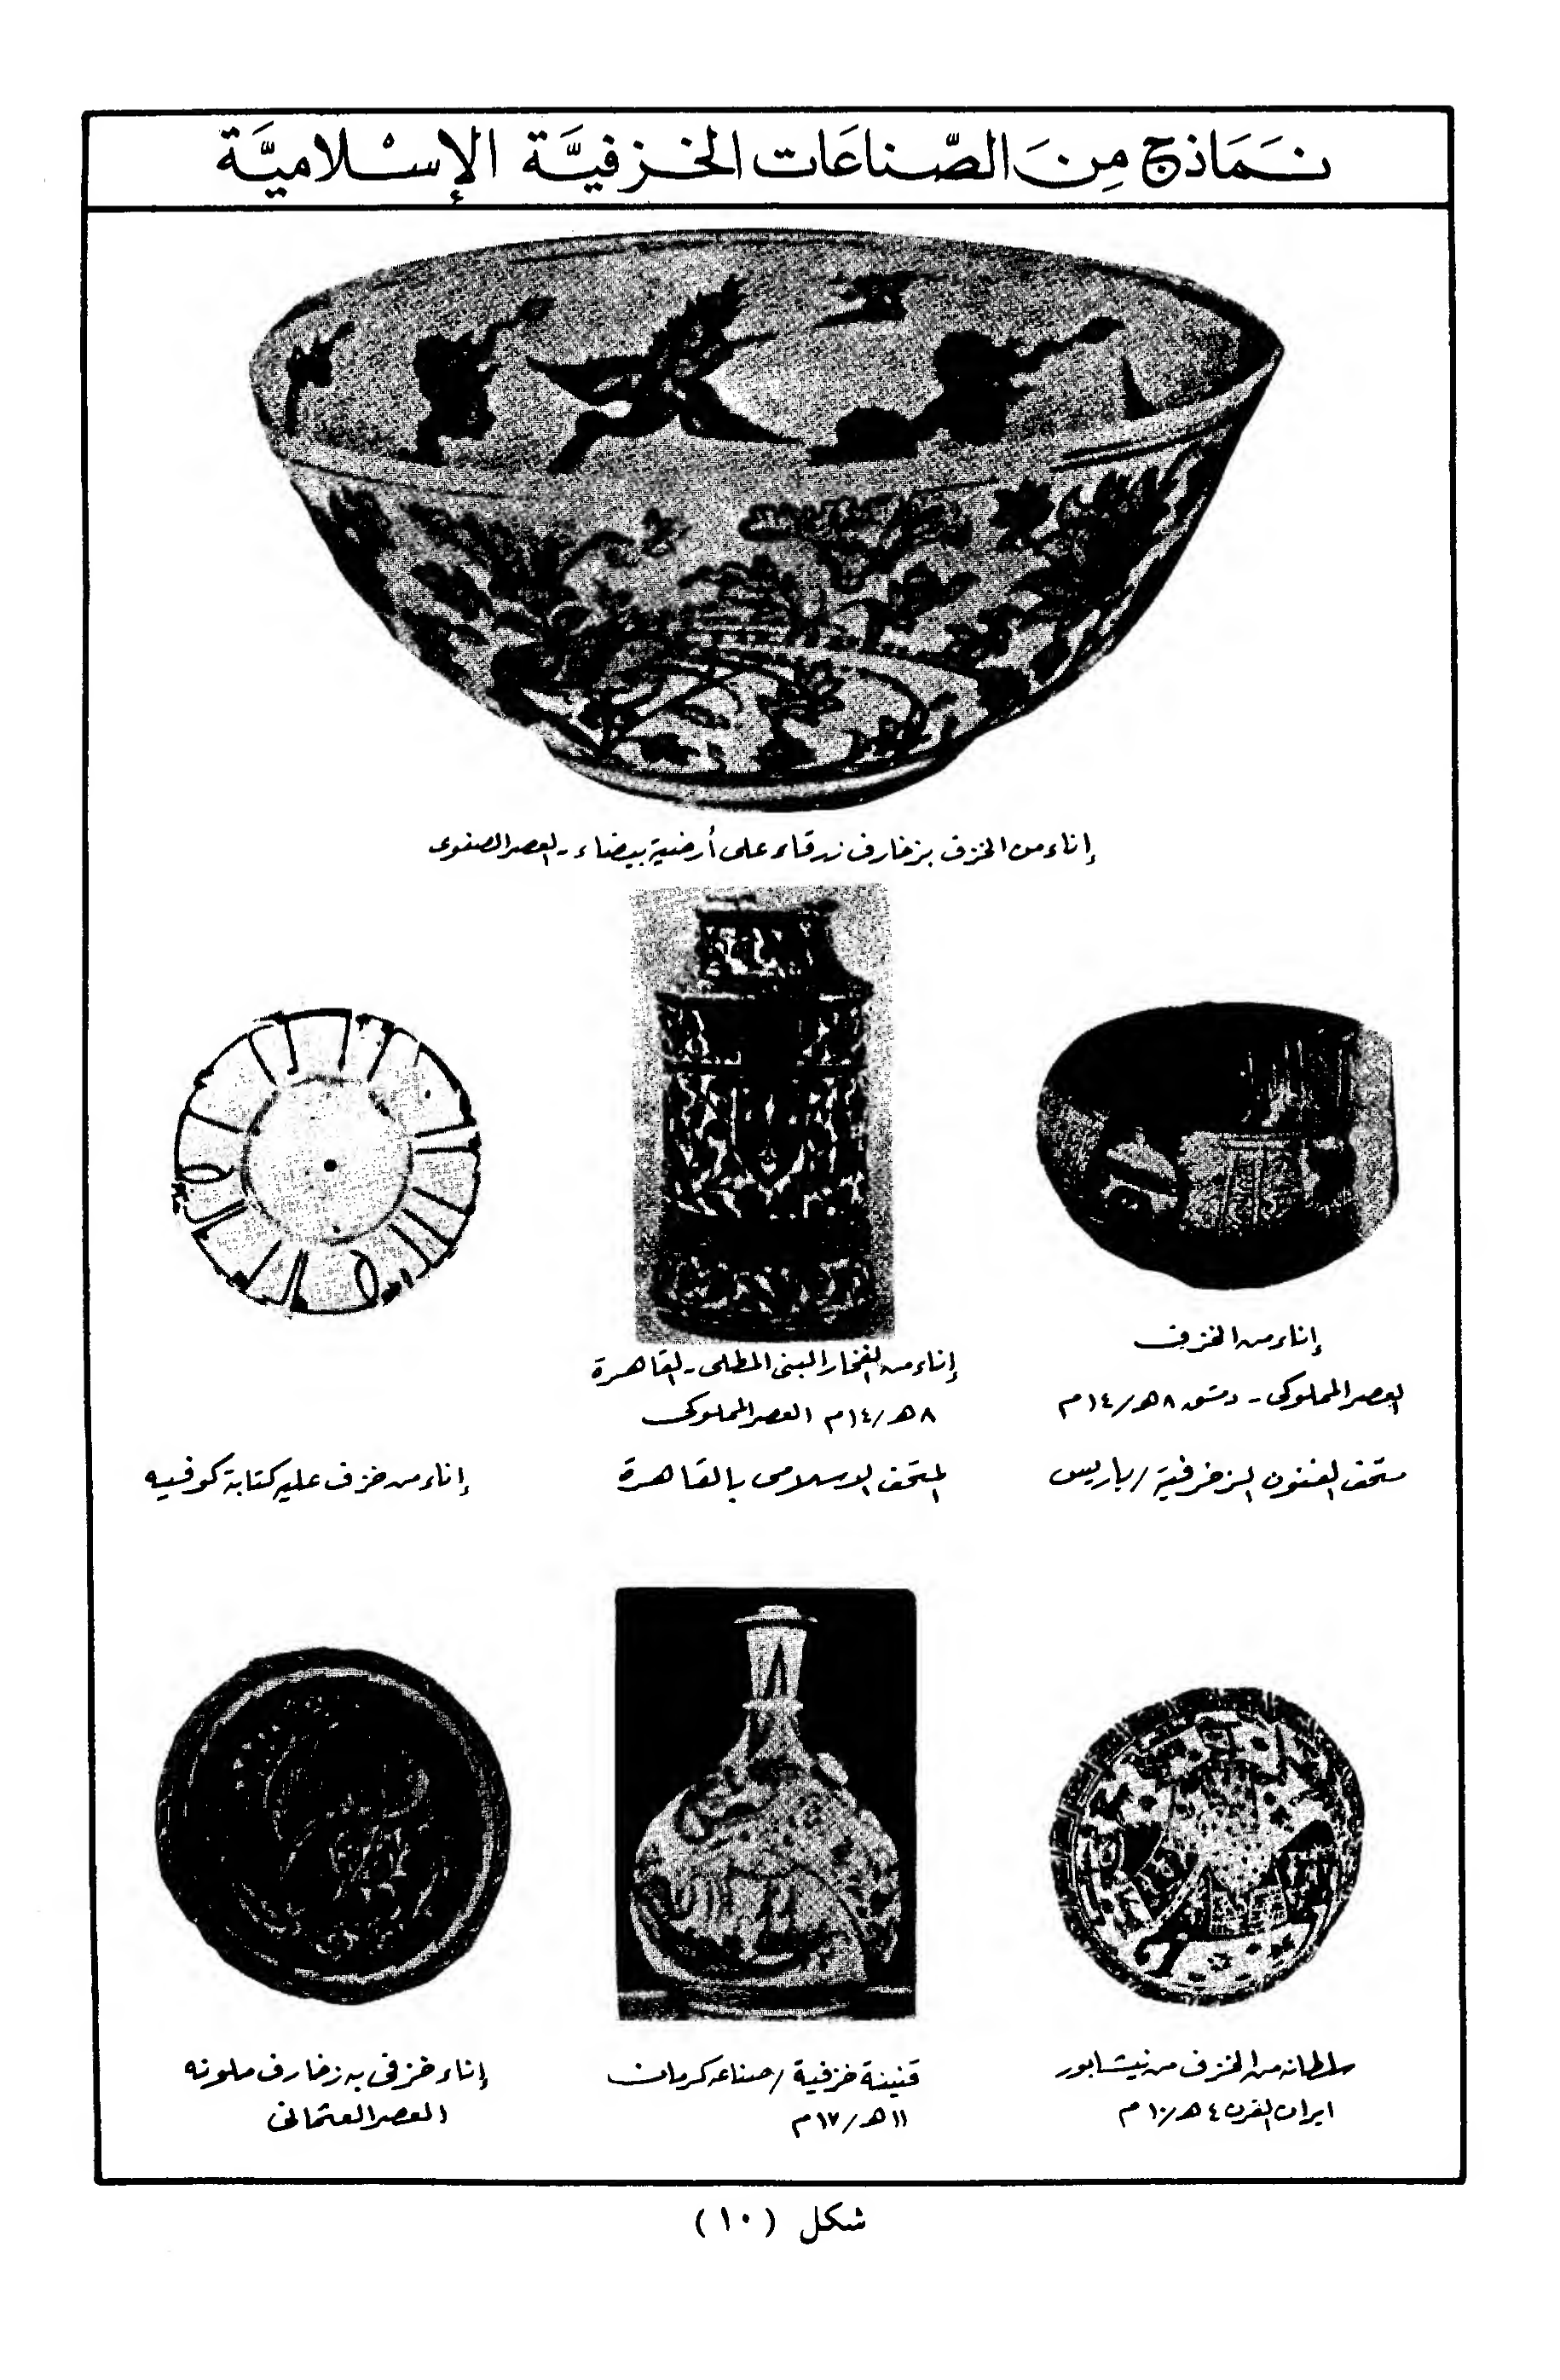 نَمَاذج مِنَ الصّناعَات الخزفيَّة الإسْلاميَّة
إناء من الخزف بزخارف زرقاء على أرضية بيضاء - العصر الصفوى
إناء من الخزف
العصر المملوكى - دمشق ٨هـ/١٤م
متحف الفنون الزخرفية / باريس
إناء من الفخار البنى المطلى - القاهرة
٨هـ/١٤م العصر المملوكى
المتحف الاسلامى بالقاهرة
إناء من خزف عليه كتابة كوفيه
سلطانه من الخزف من نيشابور
ايران القرن ٤هـ/١٠م
قنينة خزفية / صناعه كرمان
١١هـ/١٧م
إناء خزفى به زخارف ملونه
العصر العثمانى
شكل (١٠)